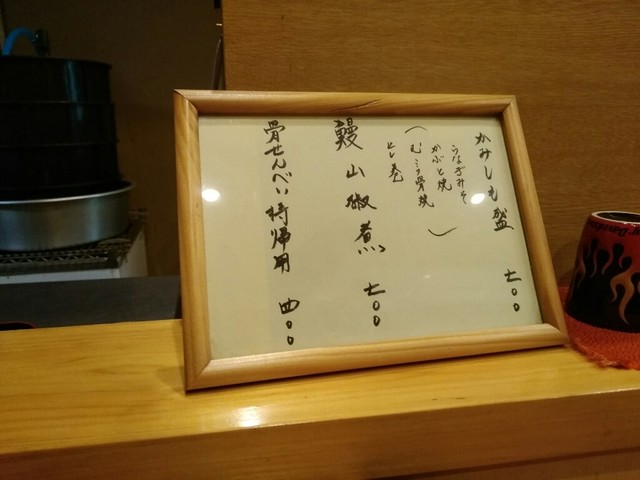 かみしも盛 七〇〇
うなぎみそ
かぶと焼
(むミヨ骨焼)
ヒレ巻
鰻山椒煮 七〇〇
骨せんべい 持帰用 四〇〇